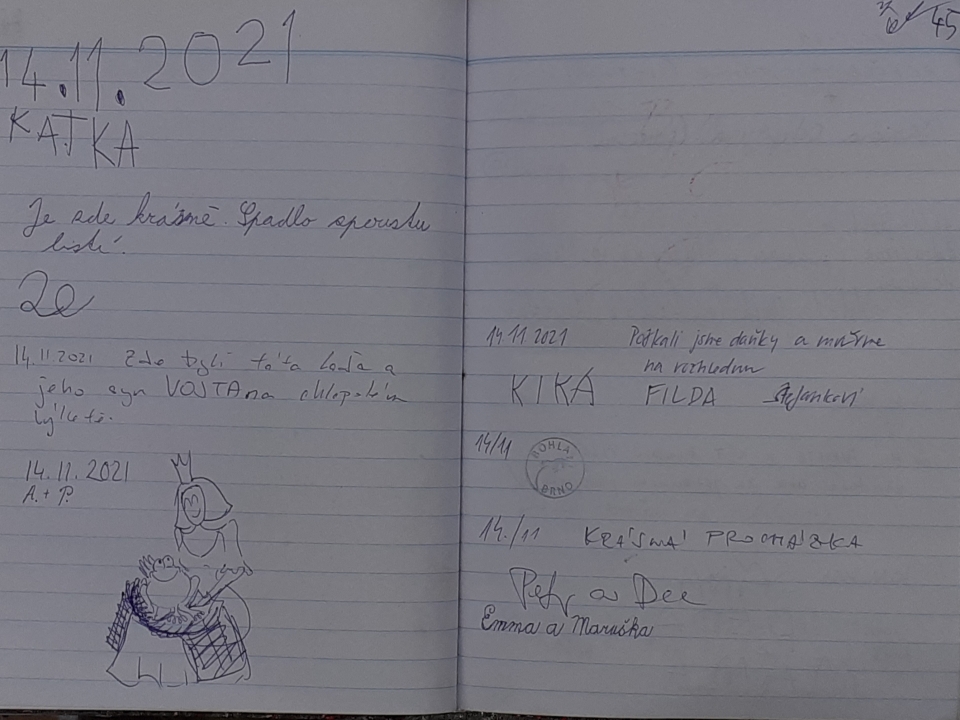 14.11.2021
KATKA
Je zde krásně. Spadlo spoustu
listí.
14.11.2021 Zde byli táta a
jeho syn VOJTA na chlapském
výletě.
14.11.2021
A. + P.
45
14.11.2021 Potkali jsme daňky a míříme
na rozhlednu
KIKA FILDA Štefankovi
14/11
ROHLA
BRNO
14./11 KRÁSNÁ PROCHÁZKA
Petr a Dee
Emma a Maruška